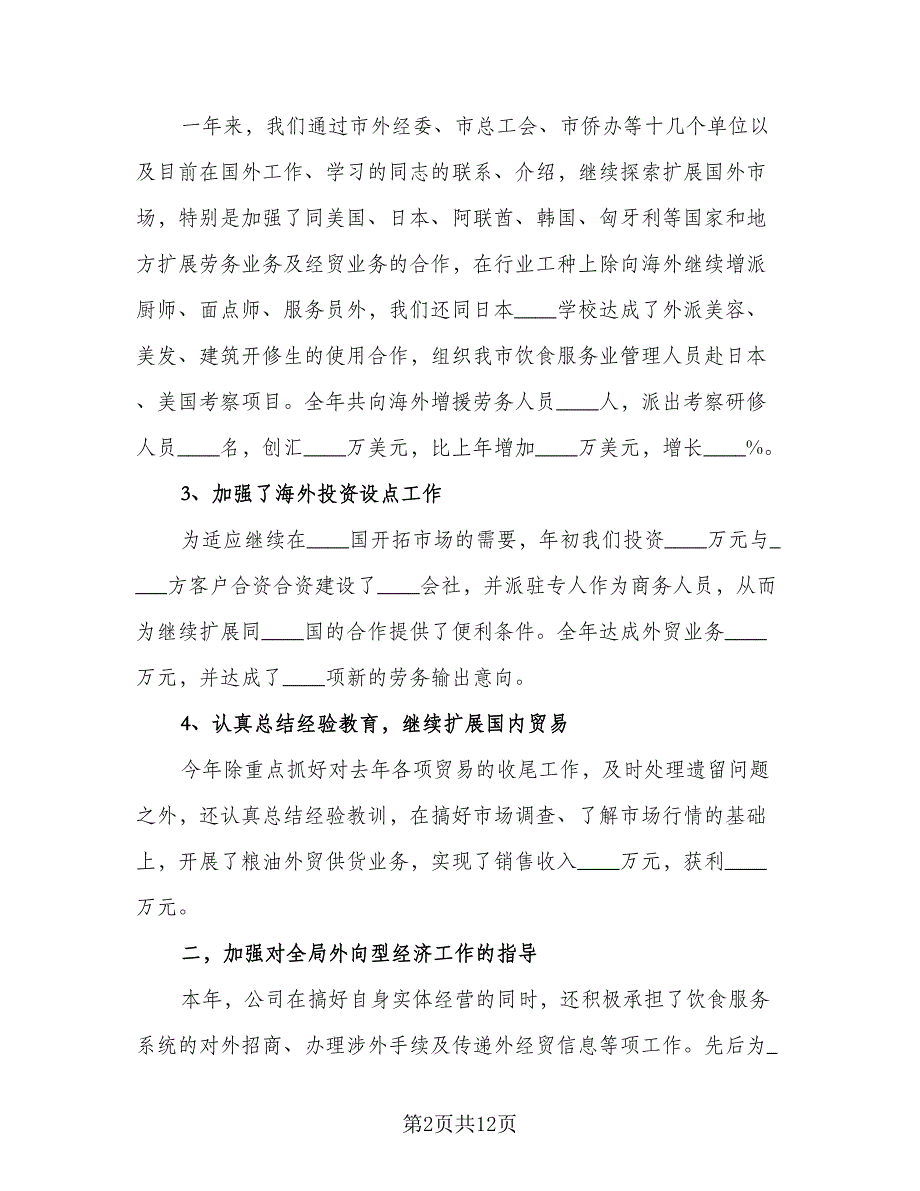 一年来，我们通过市外经委、市总工会、市侨办等十几个单位以
及目前在国外工作、学习的同志的联系、介绍，继续探索扩展国外市
场，特别是加强了同美国、日本、阿联酋、韩国、匈牙利等国家和地
方扩展劳务业务及经贸业务的合作，在行业工种上除向海外继续增派
厨师、面点师、服务员外，我们还同日本____学校达成了外派美容、
美发、建筑开修生的使用合作，组织我市饮食服务业管理人员赴日本
、美国考察项目。全年共向海外增援劳务人员____人，派出考察研修
人员____名，创汇____万美元，比上年增加____万美元，增长____%。
3、加强了海外投资设点工作
为适应继续在____国开拓市场的需要，年初我们投资____万元与_
___方客户合资合资建设了____会社，并派驻专人作为商务人员，从而
为继续扩展同____国的合作提供了便利条件。全年达成外贸业务____
万元，并达成了____项新的劳务输出意向。
4、认真总结经验教育，继续扩展国内贸易
今年除重点抓好对去年各项贸易的收尾工作，及时处理遗留问题
之外，还认真总结经验教训，在搞好市场调查、了解市场行情的基础
上，开展了粮油外贸供货业务，实现了销售收入____万元，获利____
万元。
二，加强对全局外向型经济工作的指导
本年，公司在搞好自身实体经营的同时，还积极承担了饮食服务
系统的对外招商、办理涉外手续及传递外经贸信息等项工作。先后为_
第2页共12页